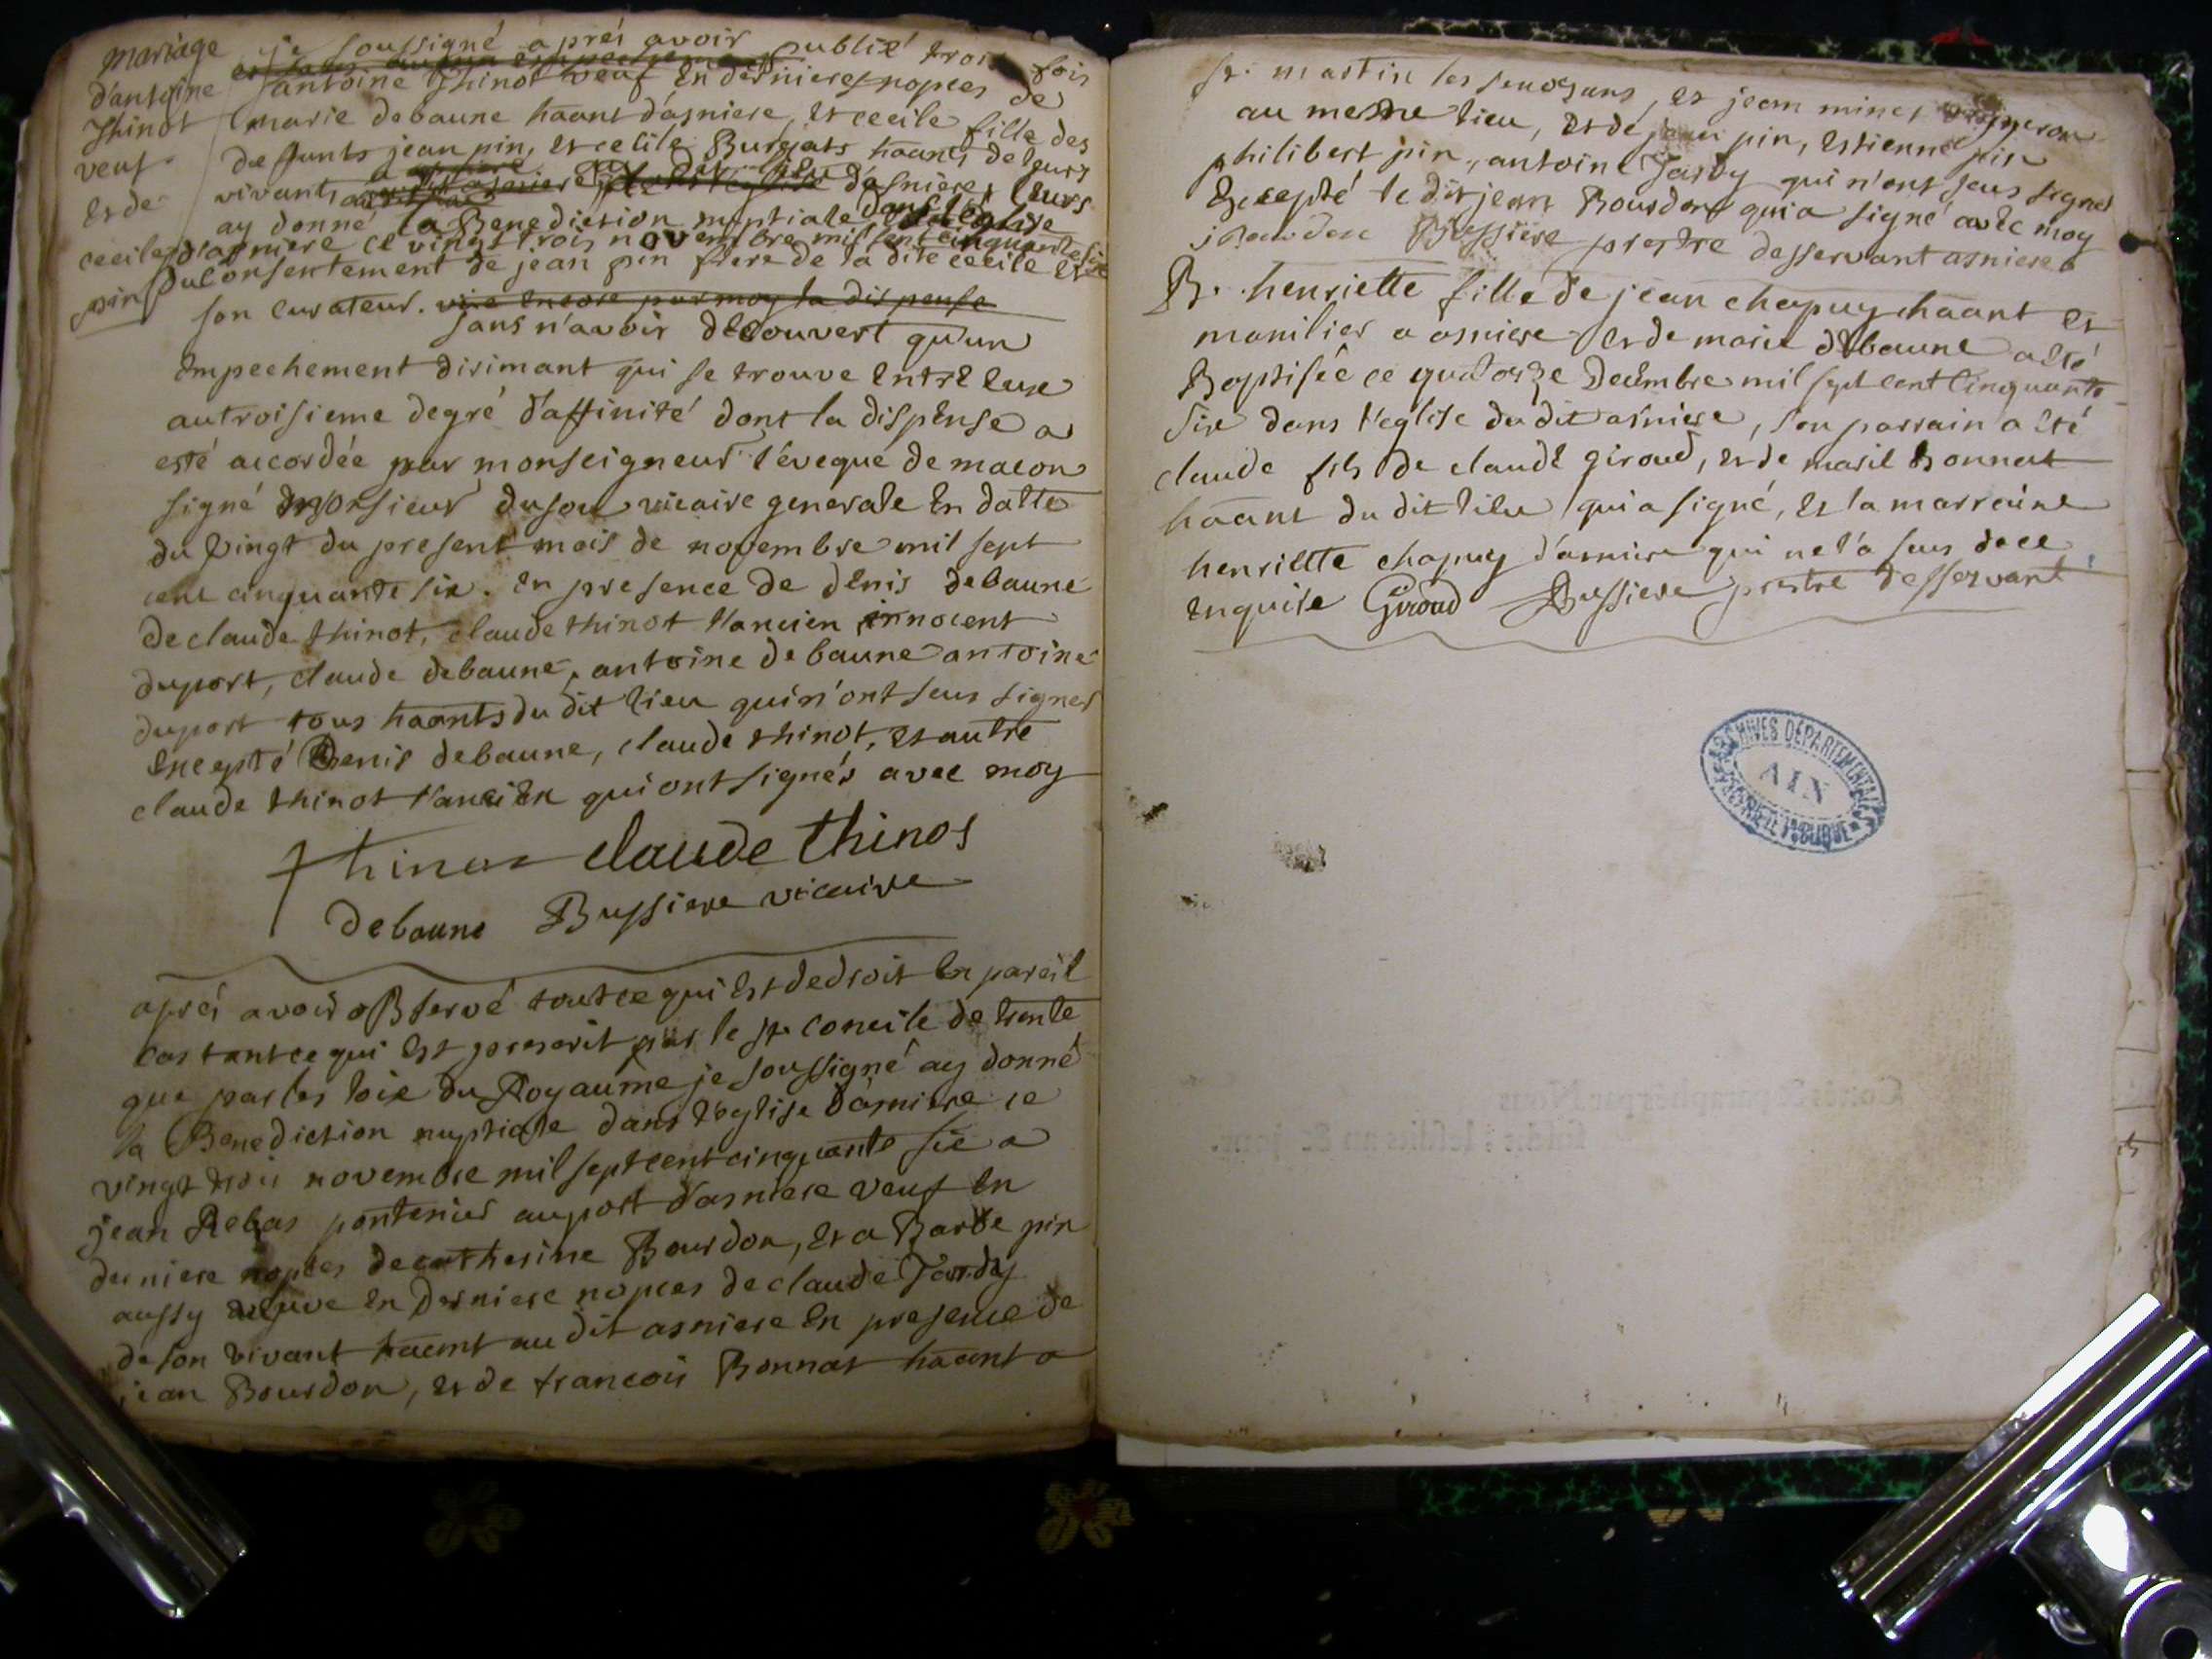 mariage
d'antoine
Thinot
veuf
et de
cecile
pin
je soussigné aprés avoir publié trois fois
antoine Thinot veuf en dernieres nopces de
marie debaune haant d'asniere, et cecile fille des
defunts jean pin, et cecile Burgats haants de leurs
vivants d'asniere, leurs
ay donné la Benediction nuptiale dans l'eglise
d'asniere ce vingt trois novembre mil sept cent cinquante six
du consentement de jean pin frere de la dite cecile et
son curateur. vire encore par moy la dispense
sans n'avoir découvert qu'un
empechement dirimant qui se trouve entre eux
au troisieme degré d'affinité dont la dispense a
esté accordée par monseigneur l'éveque de macon
signé monsieur vicaire generale en datte
du vingt du present mois de novembre mil sept
cent cinquante six. en presence de denis debaune
de claude thinot, claude thinot l'ancien innocent
duport, claude debaune, antoine debaune antoine
duport tous haants du dit lieu qui n'ont seus signer
excepté Denis debaune, claude thinot, et autre
claude thinot l'ancien qui ont signés avec moy
thinot claude thinos
debaune Bussiere vicaire
aprés avoir observé tout ce qui est de droit en pareil
cas tant ce qui est prescrit par le st concile de trente
que par les loix du Royaume je soussigné ay donné
la Benediction nuptiale dans l'eglise d'asniere ce
vingt trois novembre mil sept cent cinquante six a
jean Rebas pontenier au port d'asniere veuf en
derniere nopces de catherine Bourdon, et a Barbe pin
aussy veuve en derniere nopces de claude Tardy
de son vivant haant au dit asniere en presence de
jean Bourdon, et de francois Bonnat haant a
st. martin les senozans, et jean minet vigneron
au mesme lieu, et de jean pin, estienne pin
philibert pin, antoine Tardy qui n'ont seus signer
Excepté le dit jean Bourdon qui a signé avec moy
j Bourdon Bussiere prestre desservant asniere
B. henriette fille de jean chapuy haant et
manilier a asniere et de marie debaune a été
Baptisée ce quatorze decembre mil sept cent cinquante
six dans l'eglise du dit asniere, son parrain a été
claude fils de claude giroud, et de marie Bonnat
haant du dit lieu qui a signé, et la marraine
henriette chapuy d'asniere qui ne l'a seus de ce
enquise Giroud Bussiere prestre desservant
ARCHIVES DÉPARTEMENTALES
AIN
PROPRIÉTÉ PUBLIQUE